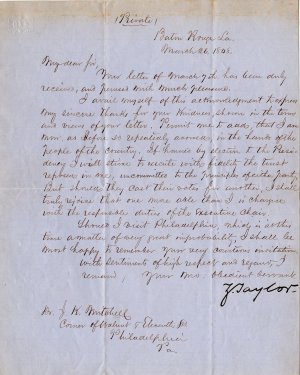 (Private)
Baton Rouge La.
March 26, 1848.
My dear Sir,
Your letter of March 7th has been duly
received, and perused with much pleasure.
I avail myself of this acknowledgment to express
my sincere thanks for your kindness, shown in the terms
and views of your letter. Permit me to add, that I am
now as before so repeatedly avowed, in the hands of the
people of the country. If honored by election to the Presi-
dency I will strive to execute with fidelity the trust
reposed in me, uncommitted to the principles of either party.
But should they cast their votes for another, I shall
truly rejoice that one more able than I is charged
with the responsible duties of the Executive Chair.
Should I visit Philadelphia, which is at this
time a matter of very great improbability, I should be
most happy to remember your very courteous invitation
With sentiments of high respect and regard, I
remain, Your Mo: obedient servant
Z. Taylor.
Dr. J. K. Mitchell
Corner of Walnut & Eleventh St
Philadelphia
Pa.